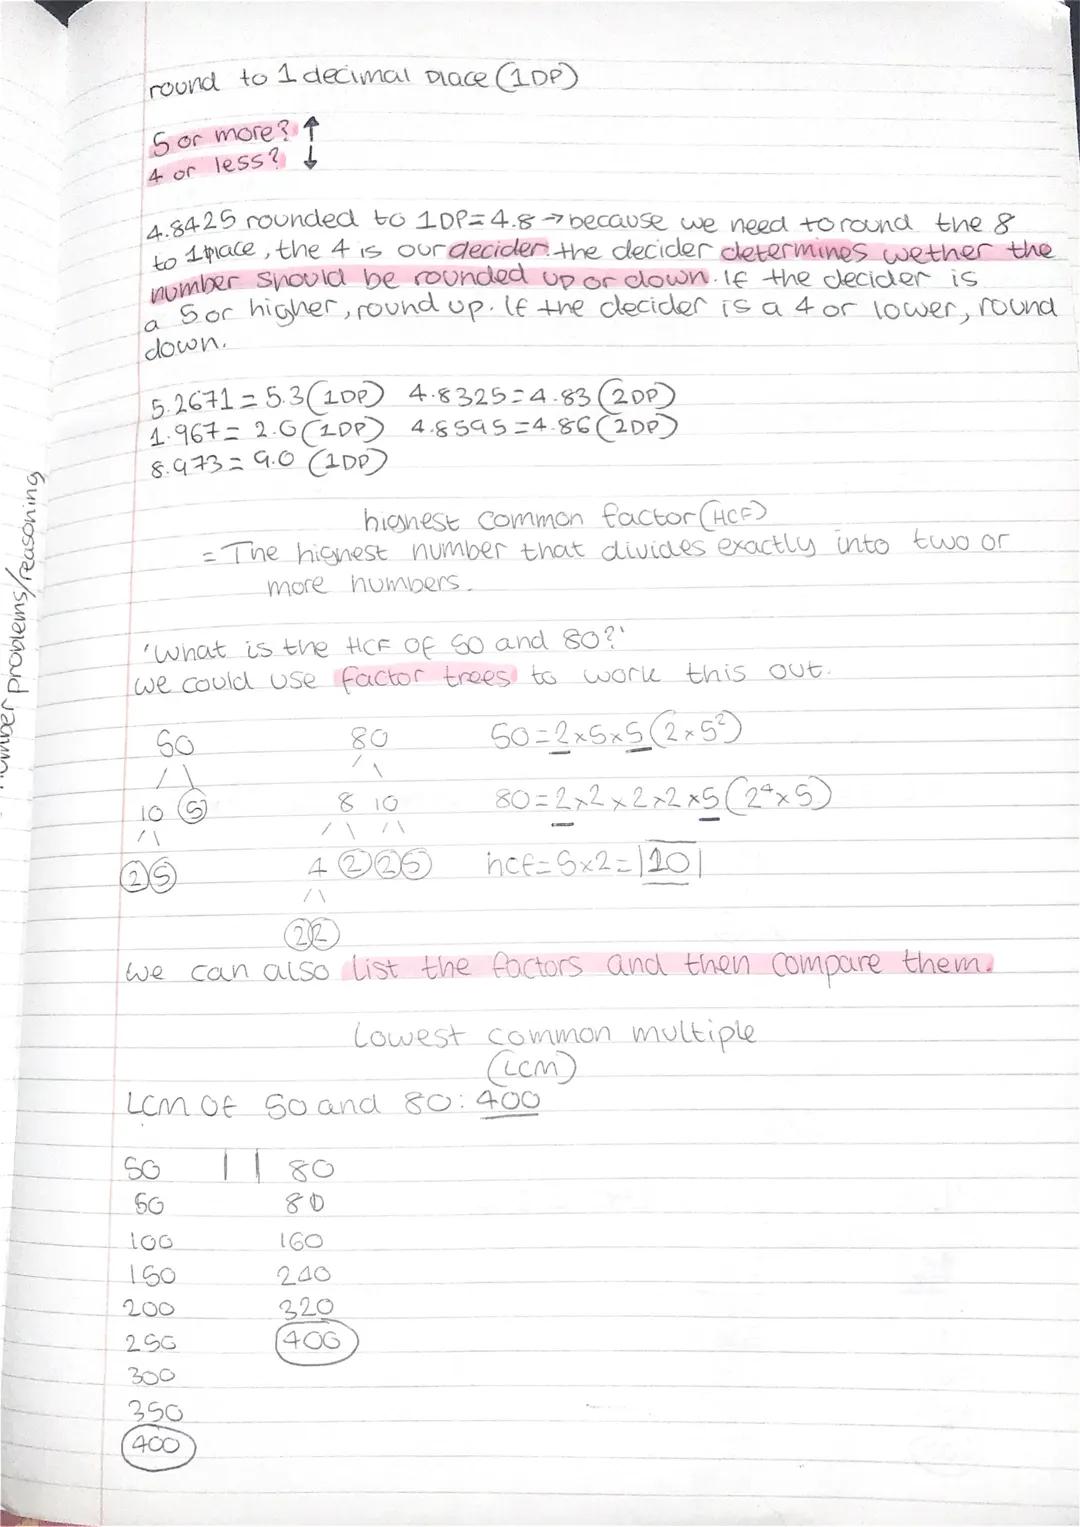 round to 1 decimal place (1DP)
5 or more? ↑
4 or less? ↓
4.8425 rounded to 1DP=4.8 → because we need to round the 8
to 1 place, the 4 is our decider. the decider determines wether the
number should be rounded up or down. If the decider is
a 5 or higher, round up. If the decider is a 4 or lower, round
down.
5.2671 = 5.3 (1DP) 4.8325 = 4.83 (2DP)
1.967 = 2.0 (1DP) 4.8595 = 4.86 (2DP)
8.973 = 9.0 (1DP)
highest common factor (HCF)
= The highest number that divides exactly into two or
more numbers.
'What is the HCF of 50 and 80?'
we could use factor trees to work this out.
50 80 50 = 2×5×5 (2×5²)
10 5 8 10 80 = 2×2×2×2×5 (2⁴×5)
2 5 4 2 2 5 hcf = 5×2 = |10|
2 2
we can also list the factors and then compare them.
Lowest common multiple
(LCM)
LCM of 50 and 80: 400
50 || 80
50 80
100 160
150 240
200 320
250 400
300
350
400
number problems/reasoning